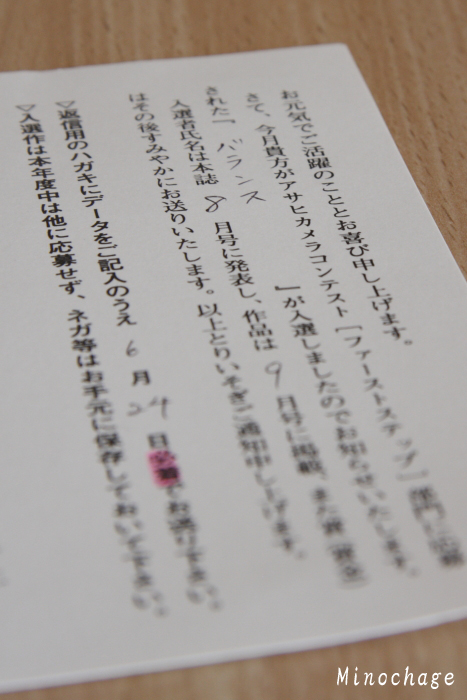 お元気でご活躍のこととお喜び申し上げます。
さて、今月貴方がアサヒカメラコンテスト「ファーストステップ」部門に応募
された「バランス 』が入選しましたのでお知らせいたします。
入選者氏名は本誌 8 月号に発表し、作品は 9 月号に掲載、また賞(賞金)
はその後すみやかにお送りいたします。以上とりいそぎご通知申し上げます。
▽返信用のハガキにデータをご記入のうえ 6 月 24 日必着でお送り下さい。
▽入選作は本年度中は他に応募せず、ネガ等はお手元に保存しておいて下さい。
Minochage